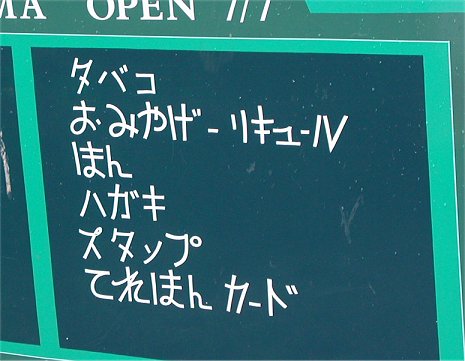 MA OPEN 7/7
タバコ
おみやげ-リキュール
ほん
ハガキ
スタップ
てれほん カード